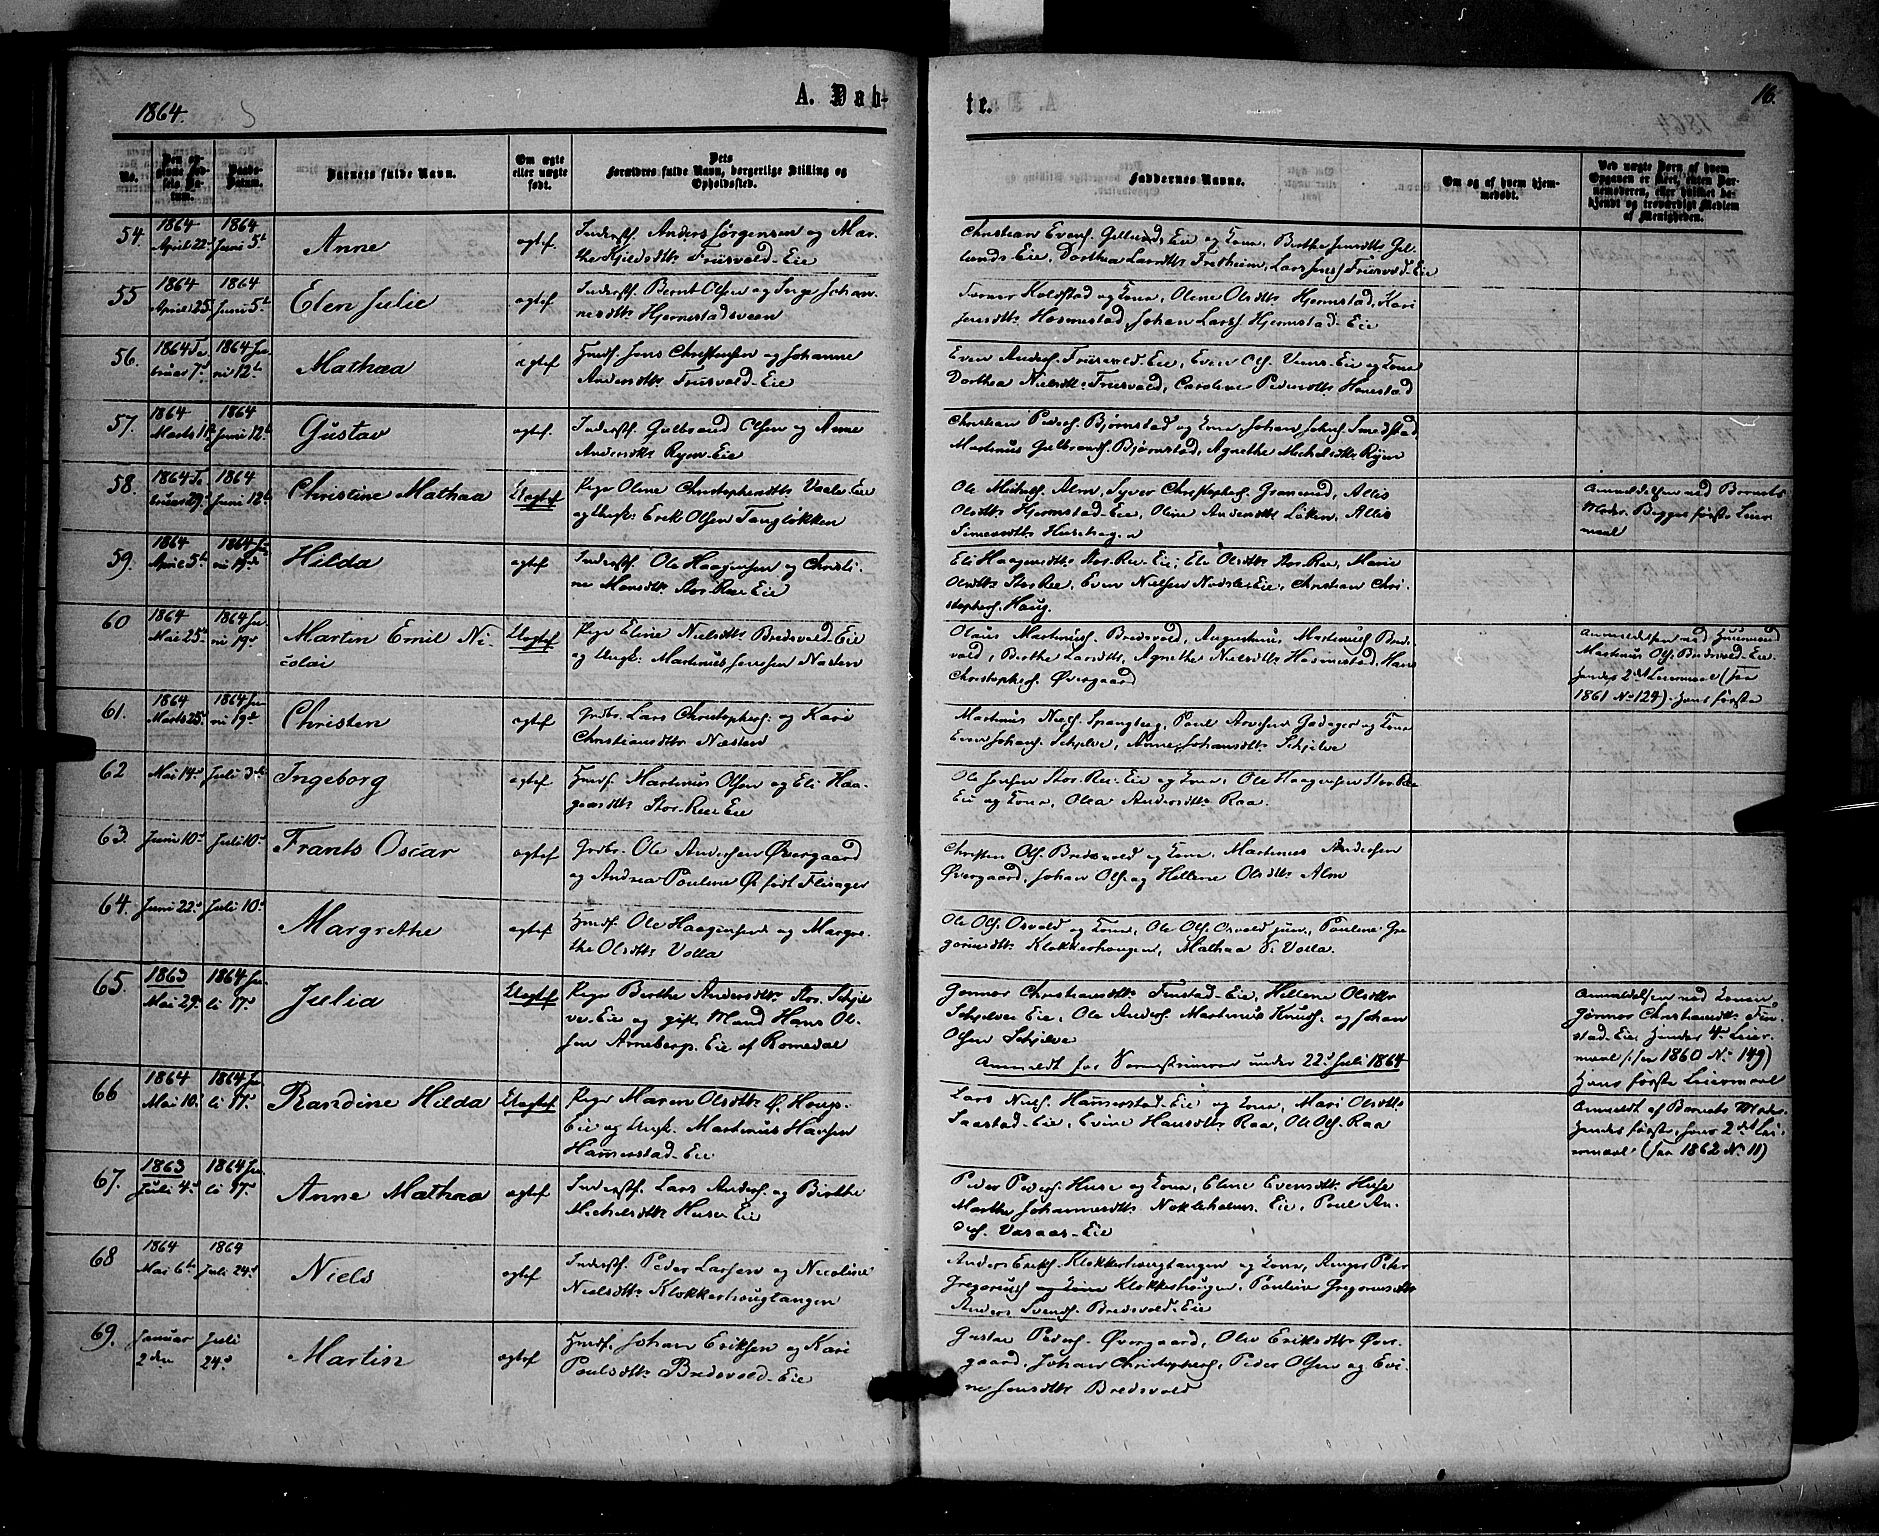 1864.
A. Døb-
te.
16.
No.
Den opgivne Fødsels Datum.
Daabs-Datum.
Barnets fulde Navn.
Om ægte eller uægte født.
Dets Forældres fulde Navn, borgerlige Stilling og Opholdssted.
Faddernes Navne.
Om og af hvem hjemmedøbt.
Ved uægte Børn af hvem Opgaven er skeet, enten Barnemoderen, eller hvilket bekjendt og troværdigt Medlem af Menigheden.
54. 1864 April 22 1864 Juni 5t Anne ægtef
Inderstf. Anders Jørgensen og Mar-
the Kjeldsdttr Friisvold-Eie
Christian Evens. Gillunds Eie og Kone, Berthe Jensdttr Gil-
lunds Eie, Dorthea Larsdttr Fretheim, Lars Jenss. Friisvold-Eie
55 1864 April 25 1864 Juni 5t Elen Julie ægtef
Inderstf. Bernt Olsen og Inge Johan-
nesdttr Hjermstadsveen
Koldstad og Kone, Olene Olsdttr Hjermstad, Kari
Jensdttr Hosmestad, Johan Larss. Hjermstad-Eie
56. 1864 Fe-
bruar 7d 1864 Ju-
ni 12t Mathea ægtef
Husmf. Jens Christensen og Johanne
Andersdttr Friisvold-Eie
Even Anders. Friisvold-Eie, Even Ols. Veens-Eie og Kone
Dorthea Nielsdttr Friisvold, Caroline Pedersdttr Honestad
57. 1864 Marts 11 1864 Juni 12t Gustav ægtef.
Inderstf. Gulbrand Olsen og Anne
Andersdttr Ryen-Eie
Christian Peders. Bjørnstad og Kone, Johan Johs. Smedstad
Martinus Gulbrands. Bjørnstad, Agnethe Michelsdttr Ryen
58. 1864 Fe-
bruar 29 1864 Juni 12t Christine Mathea Uægtef
Pige Oline Christophersdttr Vaale-Eie
og Ungk. Erik Olsen Tangløkken
Ole Michels. Alm, Syver Christophers. Grønsund, Allis
Olsdttr Hjermstad-Eie, Oline Andersdttr Løken, Allis
Simensdttr Husehagen
Anmeldelsen ved Barnets
Moder. Begges første Leier-
maal
59. 1864 April 5t 1864 Ju-
ni 19de Hilda ægtef
Inderstf. Ole Haagensen og Christi-
ne Monsdttr Stor-Ree-Eie
Eli Haagensdttr Stor-Ree-Eie, Ele Olsdttr Stor-Ree, Marie
Olsdttr Stor-Ree, Even Nielsen Nordsle-Eie, Christian Chri-
stophers. Haug.
60 1864 Mai 25 1864 Ju-
ni 19d Martin Emil Ni-
colai Uægtef
Pige Eline Nielsdttr Bredsvold-Eie
og Ungk. Martinus Jenssen Nesten
Olaus Martinus. Bredsvold, Augustinus Martinus. Breds-
vold, Berthe Larsdttr, Agnethe Nielsdttr Hosmestad, Hans
Christophers. Øvergaard
Anmeldelsen ved Huusmand
Martinus Ols. Bredsvold-Eie.
Hendes 2det Leiermaal (see
1861 No 124). Hans første
61. 1864 Marts 25 1864 Ju-
ni 19d Christen ægtef
Grdbr. Lars Christophers. og Kari
Christiansdttr Næsten
Martinus Niels. Spangberg, Paul Arnesen Godager og Kone
Even Johans. Schjelve, Anne Johansdttr Schjelve
62 Mai 14d Juli 3de Ingeborg ægtef
Husmf. Martinus Olsen og Eli Haa-
gensdttr Stor-Ree-Eie
Ole Jensen Stor-Ree-Eie og Kone, Ole Haagensen Stor-Ree
Eie og Kone, Olea Andersdttr Raa.
63. Juni 10d Juli 10d Frants Oscar ægtef
Grdbr. Ole Andersen Øvergaard
og Andrea Pauline Ø. født Flisager
Christen Ols. Bredsvold og Kone, Martinus Andersen
Øvergaard, Johan Ols. og Hellene Olsdttr Alm
64. Juni 22d Juli 10d Margrethe ægtef
Husmf. Ole Haagensen og Margre-
the Olsdttr Volla
Ole Ols. Osvold og Kone, Ole Ols. Osvold jun., Pauline Gre-
gorusdttr Klokkerhougen, Mathea S. Volla
65. 1863 Mai 29 1864 Ju-
li 17d Julia Uægtef
Pige Berthe Andersdttr Stor-Schjel-
ve-Eie og gift Mand Hans Ol-
sen Arneberg-Eie af Romedal
Gunnor Christiansdttr Finstad-Eie, Hellene Olsdttr
Schjelve Eie, Ole Anders. Martinus Knuds. og Johan
Olsen Schjelve
Anmeldt for under 22d Juli 1864
Anmeldelsen ved Konen
Gunnor Christiansdttr Fin-
stad-Eie. Hendes 4de Leier-
maal (see 1860 No 149)
Hans første Leiermaal
66 1864 Mai 10 1864 Ju-
li 17d Randine Hilda Uægtef
Pige Maren Olsdttr Ø. Hougs-
Eie og Ungk. Martinus Hansen
Hammerstad-Eie
Lars Niels. Hammerstad-Eie og Kone, Mari Olsdttr
Saastad-Eie, Evine Hansdttr Raa, Ole Ols. Raa
Anmeldt af Barnets Moder.
Hendes første, hans 2det Lei-
ermaal (see 1862 No 11)
67. 1863 Juli 4d 1864 Ju-
li 17d Anne Mathea ægtef
Inderstf. Lars Anders. og Birthe
Michelsdttr Huse-Eie
Peder Peders. Huse og Kone, Eline Evensdttr Huse
Marthe Johannesdttr Nokleholms-Eie, Paul An-
ders. Vasaas-Eie
68 1864 Mai 6t 1864 Juli 24d Niels ægtef
Inderstf. Peder Larsen og Nicoline
Nielsdttr Klokkerhougtangen
Anders Eriks. Klokkerhougtangen og Kone, Peter
Gregorius. Klokkerhougen, Pauline Gregorusdttr
Anders Svends. Bredsvold-Eie
69. Januar
2den Juli
24d Martin ægtef
Husmf. Johan Eriksen og Kari
Paulsdttr Bredsvold-Eie
Gustav Peders. Øvergaard, Olea Eriksdttr Øver-
gaard, Johan Christophers., Peder Olsen og Evi-
ne Jensdttr Bredsvold